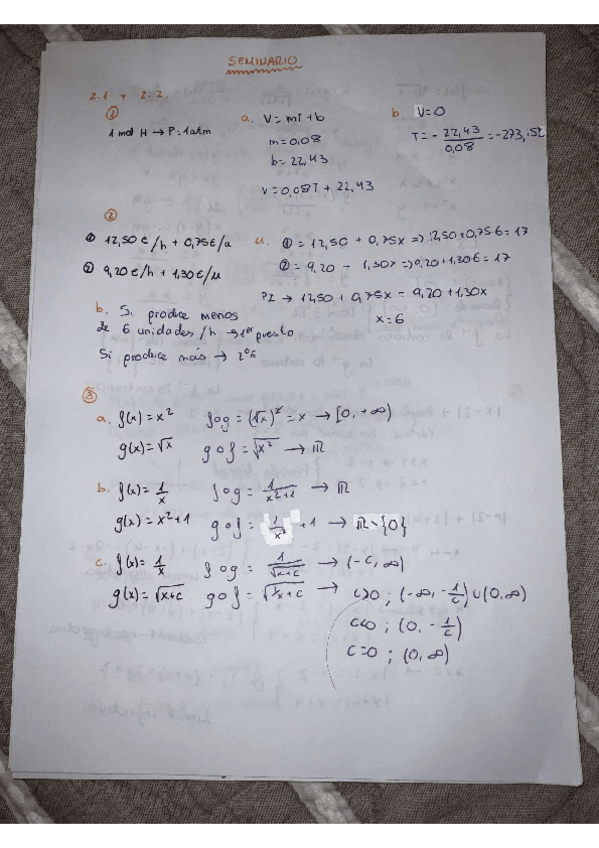 SEMINARIO
2.1 y 2.2.
①
1 mol H → P=1atm
a. V = mT + b
m = 0,08
b = 22,43
V = 0,08T + 22,43
b. V=0
T = - 22,43/0,08 = -273,15Z
②
① 12,50 €/h + 0,75€/u
② 9,20 €/h + 1,30€/u
a. ① = 12,50 + 0,75x => 12,50+0,75·6 = 17
② = 9,20 - 1,30x => 9,20+1,30·6 = 17
PI → 12,50 + 0,75x = 9,20 + 1,30x
x = 6
b. Si produce menos
de 6 unidades/h → 1er
Si produce más → 2º
③
a. f(x) = x²
g(x) = √x
f∘g = (√x)² = x → [0, +∞)
g∘f = √x² → ℝ
b. f(x) = 1/x
g(x) = x²+1
f∘g = 1/(x²+1) → ℝ
g∘f = 1/x² + 1 → ℝ∖{0}
c. f(x) = 1/x
g(x) = √(x+c)
f∘g = 1/√(x+c) → (-c, ∞)
g∘f = √(1/x + c) → c>0 ; (-∞, -1/c) ∪ (0, ∞)
c<0 ; (0, -1/c)
c=0 ; (0, ∞)